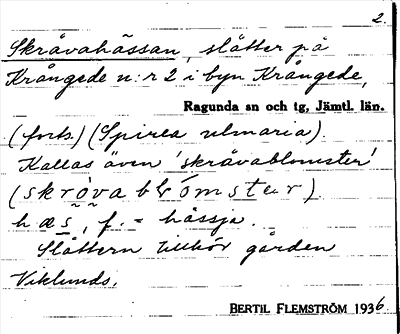 2.
Skråvahässan, slåtter på
Krångede n:r 2 i byn Krångede,
Ragunda sn och tg, Jämtl. län.
(forts.) (Spirea ulmaria).
Kallas även 'skråvablomster'
(skròvablòmstar)
hæs, f. = hässja.
Slåttern tillhör gården
Viklunds.
BERTIL FLEMSTRÖM 1936